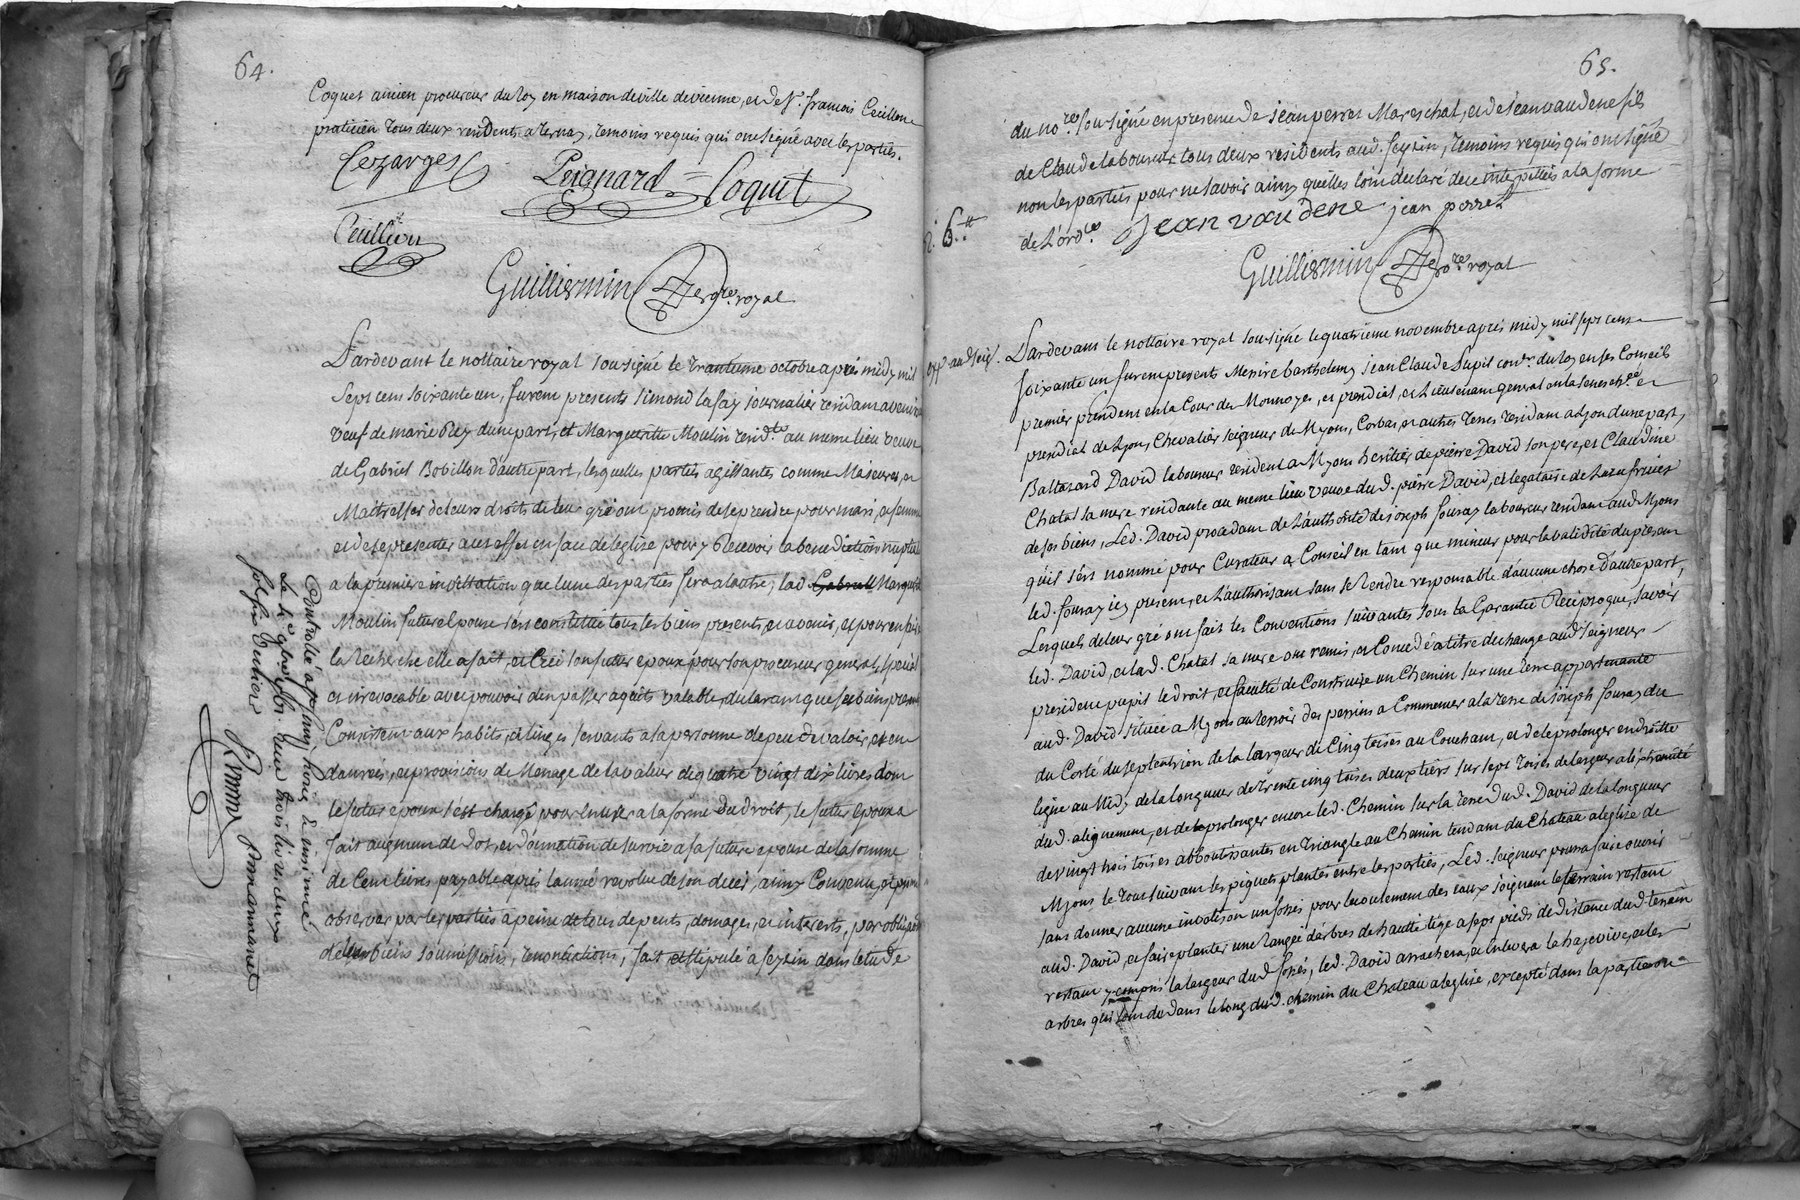 64.
Coquet ancien procureur du Roy en maison de ville de vienne, et de Sr. françois Ceillon
praticien tous deux residents a ternay, temoins requis qui ont signé avec les parties.
Lezarges Peignard Coquet
Ceillion
Guilliermin Nore. royal
Pardevant le nottaire royal soussigné le trantieme octobre aprés midy mil
sept cens soixante un, furent presents simond lafay journalier residant a
veuf de marie Rey d'une part, et Margueritte Moulin resid.te au meme lieu veuve
de Gabriel Bobillon d'autre part, lesquelles parties agissantes comme Maieures, et
Maitresses de leurs droits de leur gré ont promis de se prendre pour mari, et femme
et de se presenter a cet effet en face de l'eglise pour y Recevoir la benediction nuptialle
a la premiere invittation que l'une des parties fera a l'autre; lad. Gabriell Marguerite
Moulin future Epouse s'est constitué tous ses biens presents, et avenir, et pour en faire
la Recherche elle a fait, et Créé son futur epoux pour son procureur general, special
et irrevocable avec pouvoir d'en passer aquits valables, declarant que ses biens presents
Consistent aux habits, et linges servants a la personne de peu de valoir, et en
danrées, et provisions de Menage de la valeur de quatre vingt dix livres dont
le futur epoux s'est chargé pour en user a la forme Du droit, le futur Epoux a
fait augment de dot, et donnation de survie a sa future epouse de la somme
de Cent livres payable aprés l'année revolue de son decés, ainsy Convenu, et promis
observer par les parties a peine de tous depents, domages, et interets, par obligation
de leurs biens soumissions, renontiations, fait et stipulé à seyzin dans l'etude
Controllé a
la
sols six deniers
65.
du nore. soussigné en presence de jean perret Mareschal, et de jean vaudene fils
de Claude laboureur tous deux residents aud. seyzin, temoins requis qui ont signé
non les parties pour ne savoir ainsy quelles l'ont declaré de ce interpellées a la forme
de L'ord.ce Jean vaudene jean perret
6.tt
Guilliermin Nore. royal
exp.é aud. seig.r
Pardevant le nottaire royal soussigné le quatrieme novembre aprés midy mil sept cens
soixante un furent presents Messire barthelemy jean Claude Pupil con.er du Roy en ses Conseils
premier president en la Cour des Monnoyes, et presidial, et Lieutenant general en la seneschée. et
presidial de Lyon, Chevalier seigneur de Myons, Corbas, et autres terres residant a Lyon d'une part,
Baltazard David laboureur resident a Myons heritier de pierre David son pere, et Claudine
Chatal sa mere residante au meme lieu veuve dud. pierre David, et legataire de L'usufruit
de ses biens, Led. David procedant de L'authorité de joseph fouray laboureur residant aud. Myons
qu'il s'est nommé pour Curateur a Conseil en tant que mineur pour la validité du present
led. fouray icy present, et L'authorisant sans se Rendre responsable d'aucune chose d'autre part,
Lesquels de leur gré ont fait les Conventions suivantes sous la Garantie Reciproque, savoir
led. David, et lad. Chatal sa mere ont remis, et Concedé a titre d'echange aud. seigneur
president pupil le droit, et faculté de Construire un Chemin sur une terre appartenante
aud. David située a Myons au terroir des perrins a Commencer a la terre de joseph fouray du
du Costé du septentrion de la largeur de Cinq toises au Couchant, et de le prolonger en droitte
ligne au Midy de la longueur de trente cinq toises deux tiers sur sept toises de largeur a l'extremité
dud. alignement, et de le prolonger encore led. Chemin sur la terre dud. David de la longueur
de vingt trois toises abboutissantes en triangle au Chemin tendant du Chateau a l'eglise de
Myons le tout suivant les piquets plantés entre les parties, Led. seigneur pourra faire ouvrir
sans donner aucune invalison un fossés pour l'ecoulement des eaux joignant le terrain restant
aud. David, et faire planter une rangée d'arbres de hautte tige a sept pieds de distance dud. terrain
restant y compris la largeur dud. fossés, led. David arrachera, et enlevera la haye vive, et les
arbres qui sont dedans le long dud. chemin du Chateau a l'eglise, excepté dans la partie ou